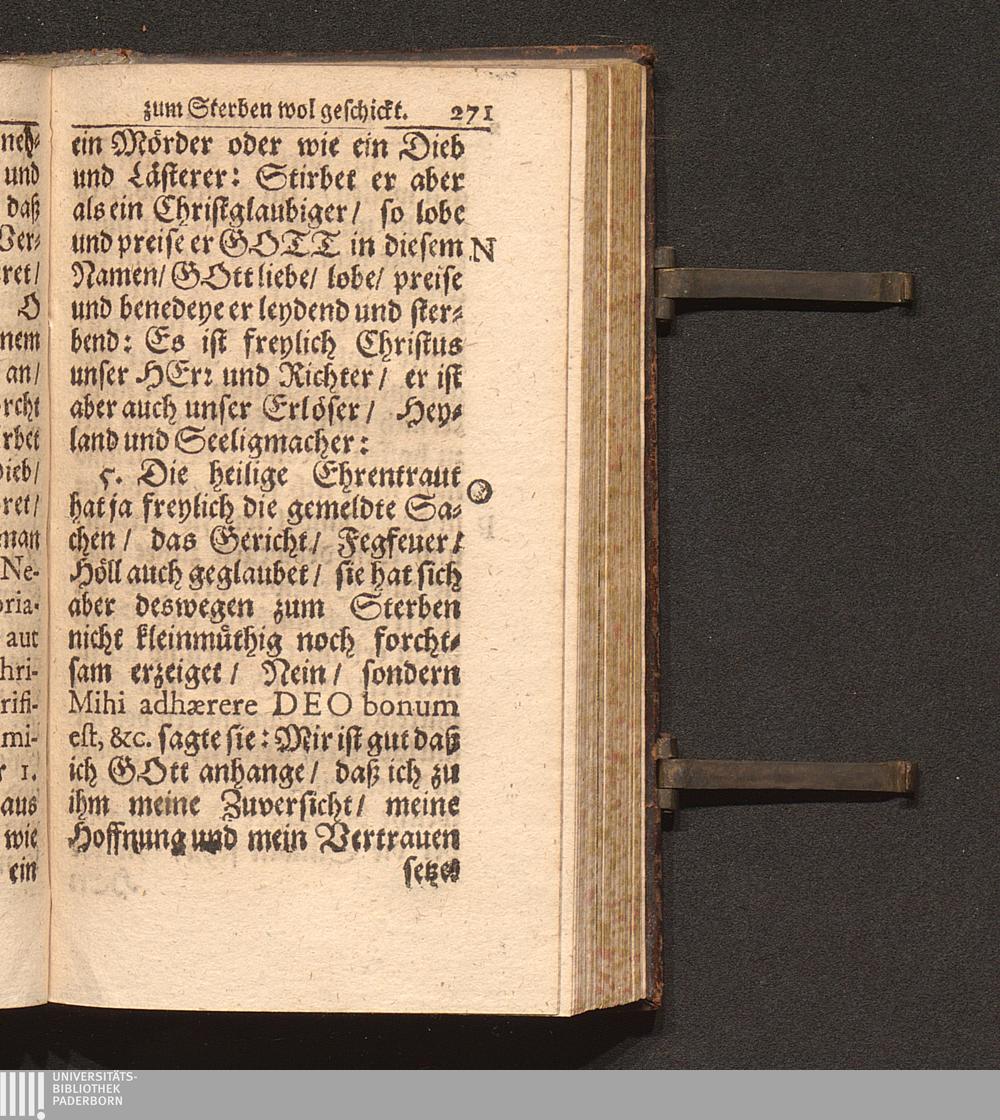 zum Sterben wol geschickt. 271
ein Mörder oder wie ein Dieb
und Lästerer: Stirbet er aber
als ein Christglaubiger/ so lobe
und preise er GOTT in diesem N
Namen/ GOtt liebe/ lobe/ preise
und benedeye er leydend und ster-
bend: Es ist freylich Christus
unser HErr und Richter/ er ist
aber auch unser Erlöser/ Hey-
land und Seeligmacher:
5. Die heilige Ehrentraut
hat ja freylich die gemeldte Sa-
chen/ das Gericht/ Fegfeuer/
Höll auch geglaubet/ sie hat sich
aber deswegen zum Sterben
nicht kleinmüthig noch forcht-
sam erzeiget/ Nein/ sondern
Mihi adhærere DEO bonum
est, &c. sagte sie: Mir ist gut daß
ich GOtt anhange/ daß ich zu
ihm meine Zuversicht/ meine
Hoffnung und mein Vertrauen
setze.
und
daß
O
an/
man
Ne-
aut
mi-
1.
aus
wie
ein
UNIVERSITÄTS-
BIBLIOTHEK
PADERBORN